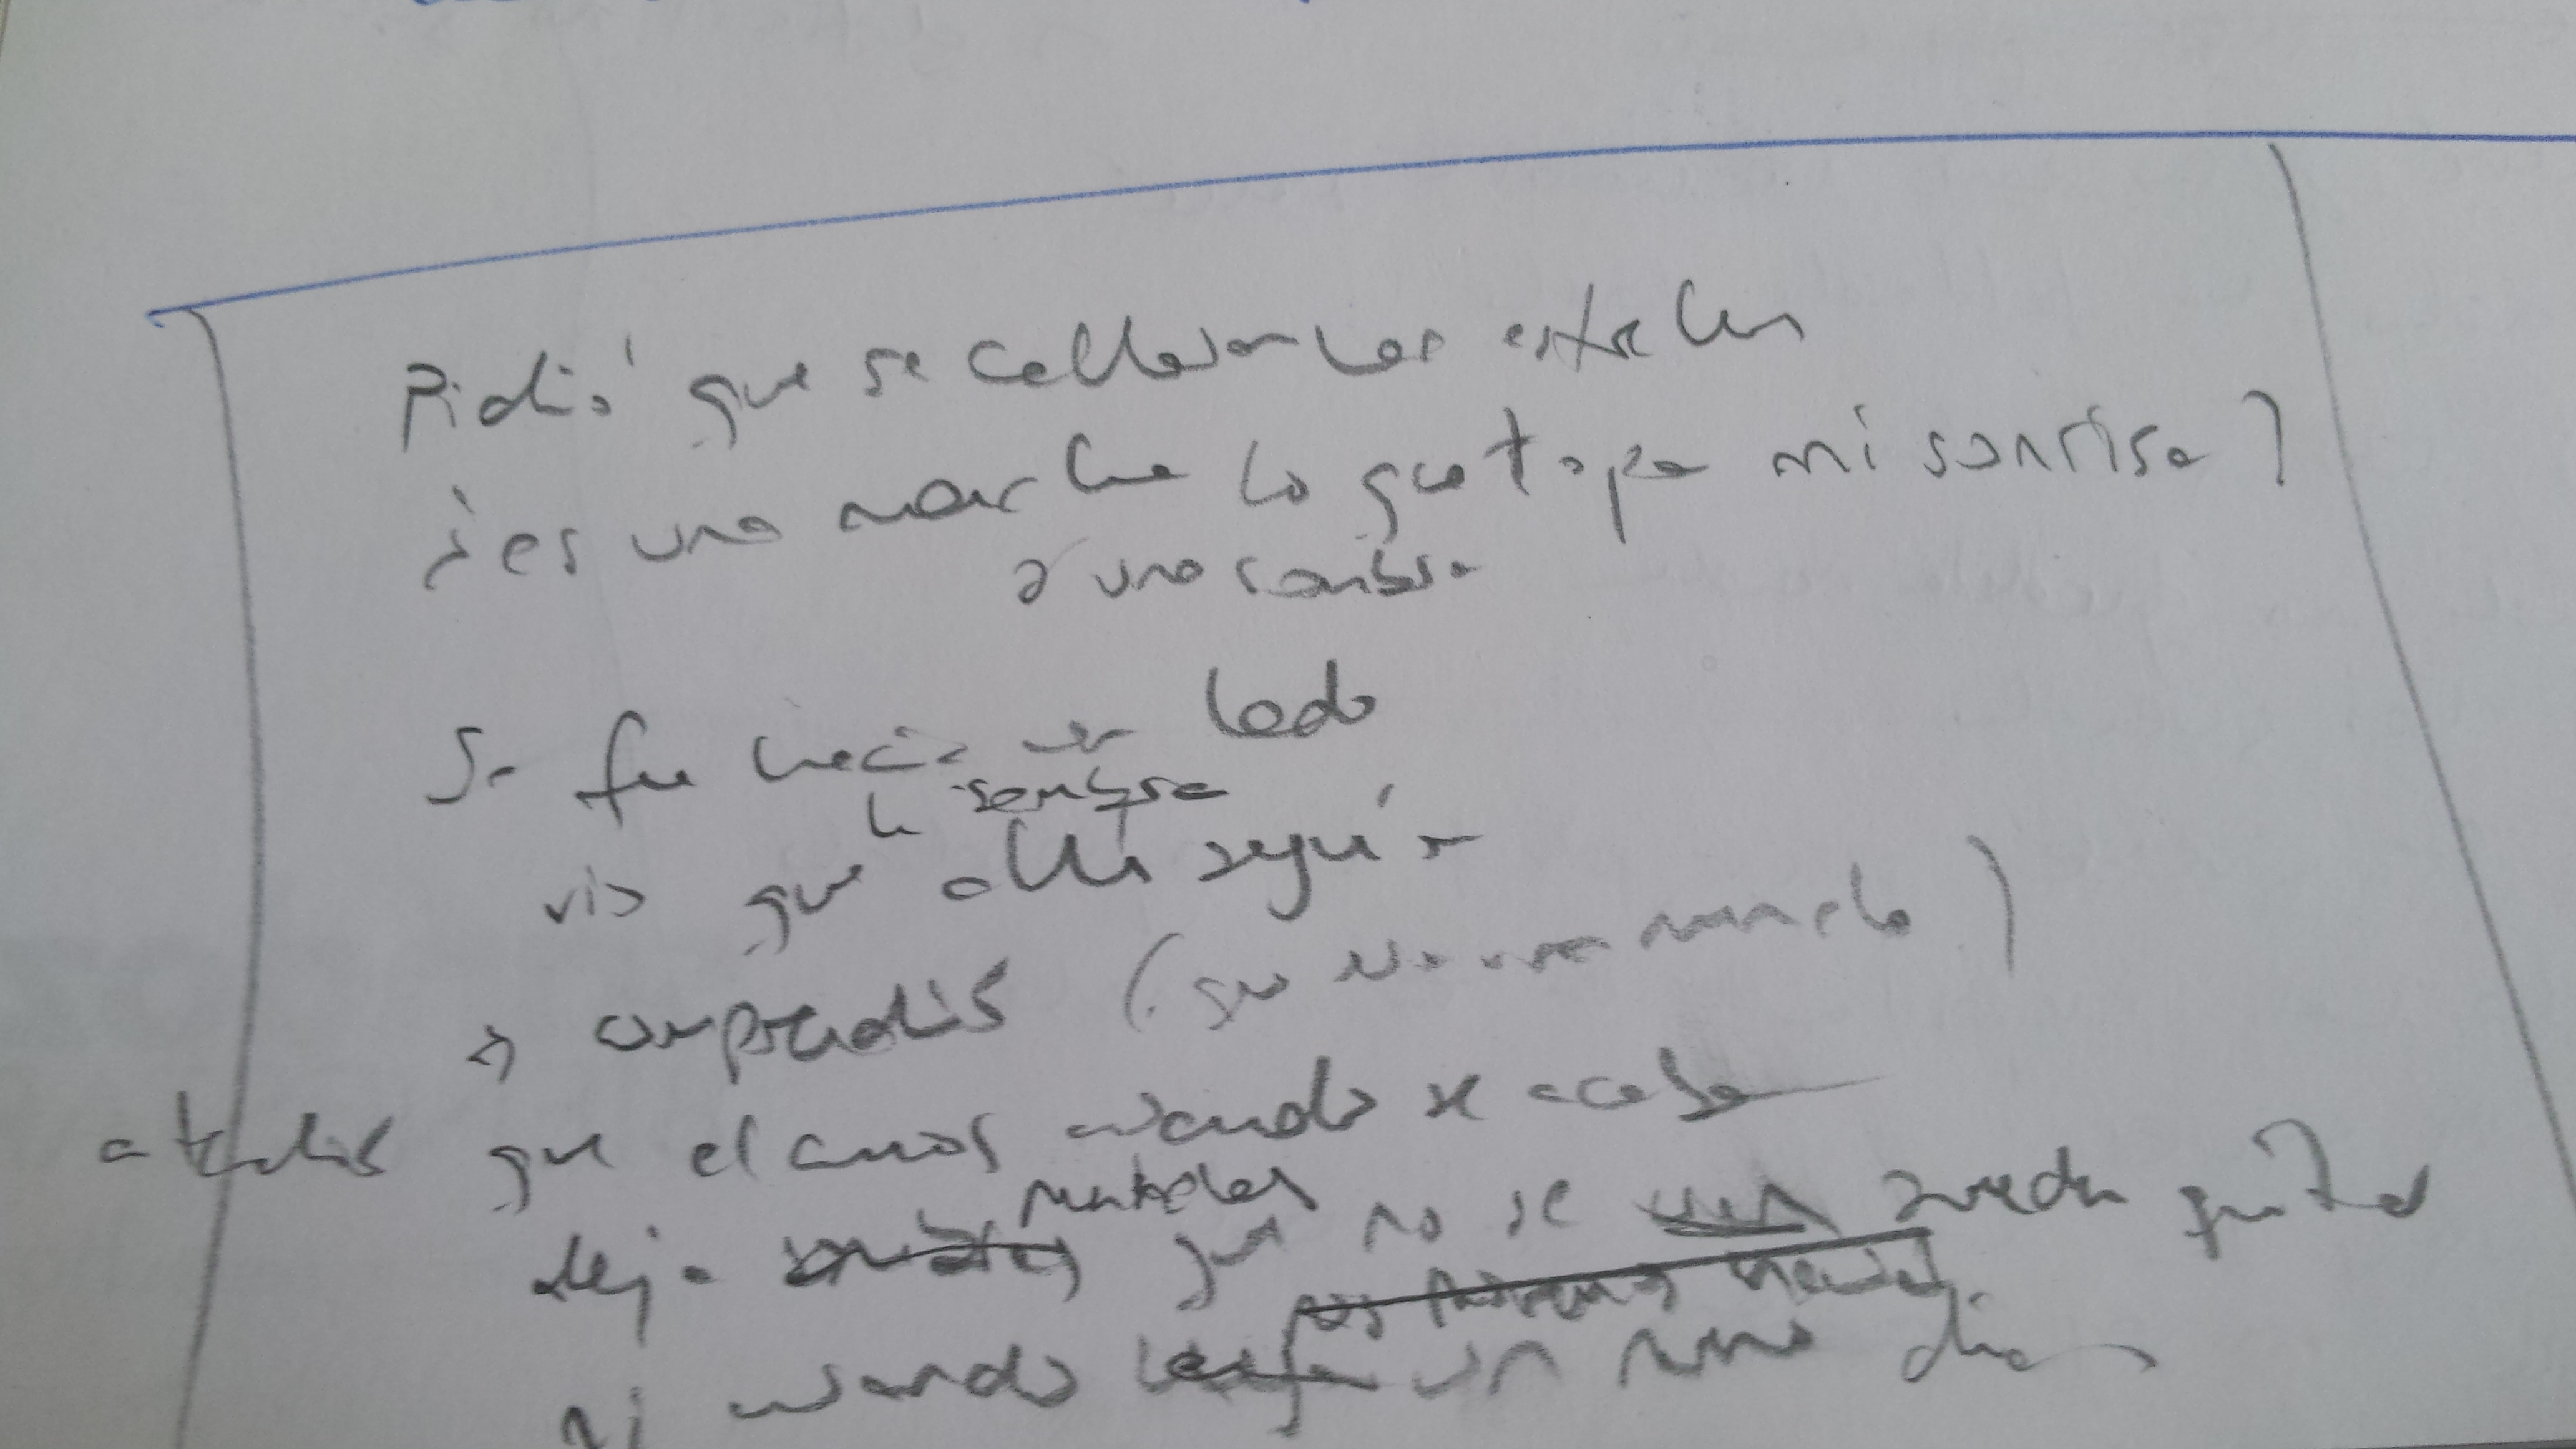 Pidió que se callaran las estrellas
¿es una mancha lo que tapa mi sonrisa?
o una sombra
Se fue hacia un lado
la sombra
vio que allí seguía
y comprendió (que no era)
que el amor cuando se acaba
deja no se puede quitar
ni cuando un nuevo día